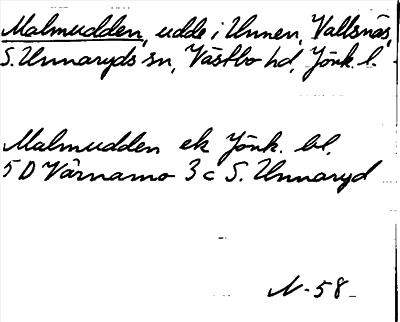 Malmudden, udde i Unnen, Vallsnäs,
S. Unnaryds sn, Västbo hd, Jönk. l.
Malmudden ek Jönk. bl.
5 D Värnamo 3 c S. Unnaryd
N-58